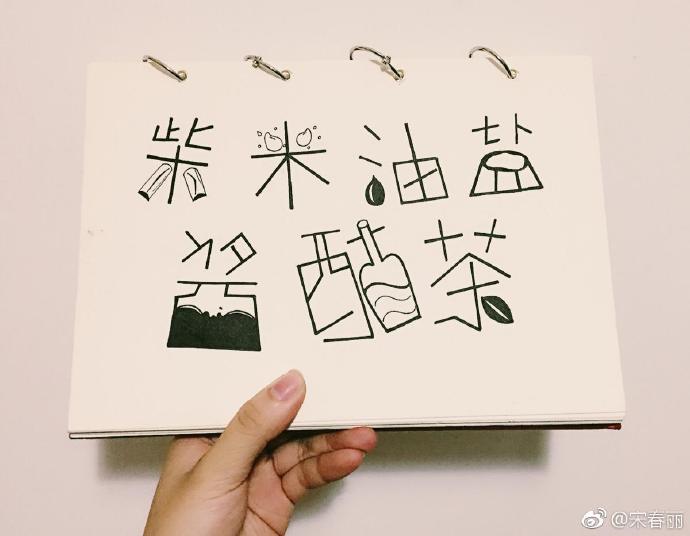 柴米油盐
酱醋茶
@宋春丽